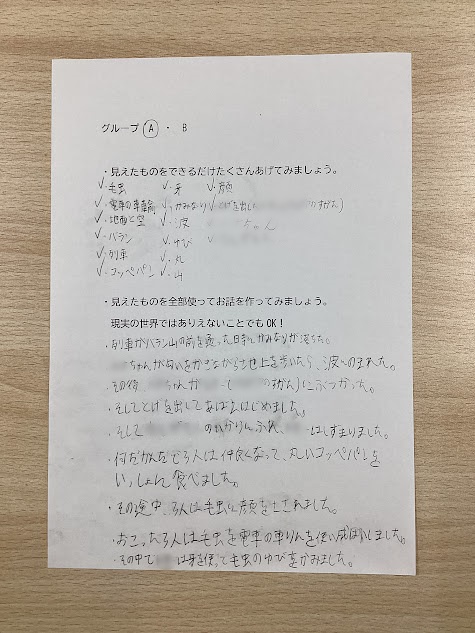 グループ A ・ B
・見えたものをできるだけたくさんあげてみましょう。
✓・毛虫 ✓・牙 ✓・顔
✓・電車の車輪 ✓・かみなり ✓・とげを出した
✓・地面と空 ✓・波 ちゃん
✓・バラン ✓・ゆび ✓・
✓・列車 ✓・丸
✓・コッペパン ✓・山
・見えたものを全部使ってお話を作ってみましょう。
現実の世界ではありえないことでもOK！
・列車がバラン山の前を通った日にかみなりが落ちた。
ちゃんが めいをかきながら地上を歩いたら、波へのまれた。
・その後、 ちゃんが て にぶつかった。
・そしてとげを出してあばれはじめました。
・そして のかかりんぶれ、 はしずまりました。
・何だかんだで3人は仲良くなって、丸いコッペパンを
いっしょに食べました。
・その途中、3人は毛虫に顔をさされました。
・おこった3人は毛虫を電車の車りんを使い成ばいしました。
・その中で は牙を使って毛虫のゆびをかみました。